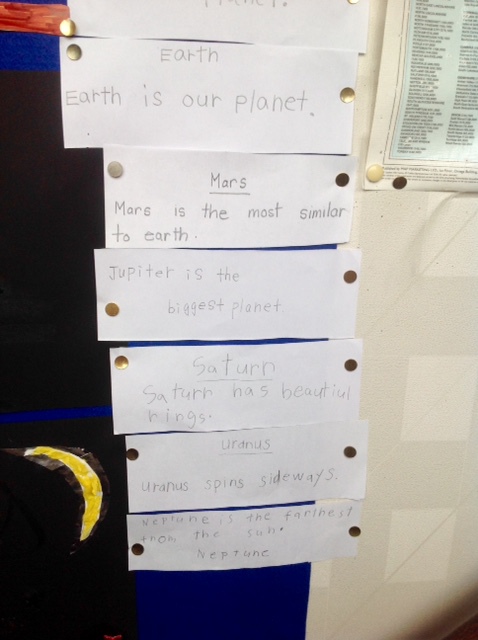 planet.
Earth
Earth is our planet.
Mars
Mars is the most similar
to earth.
Jupiter is the
biggest planet.
Saturn
Saturn has beautiul
rings.
uranus
uranus spins sideways.
Neptune is the farthest
from the sun.
Neptune